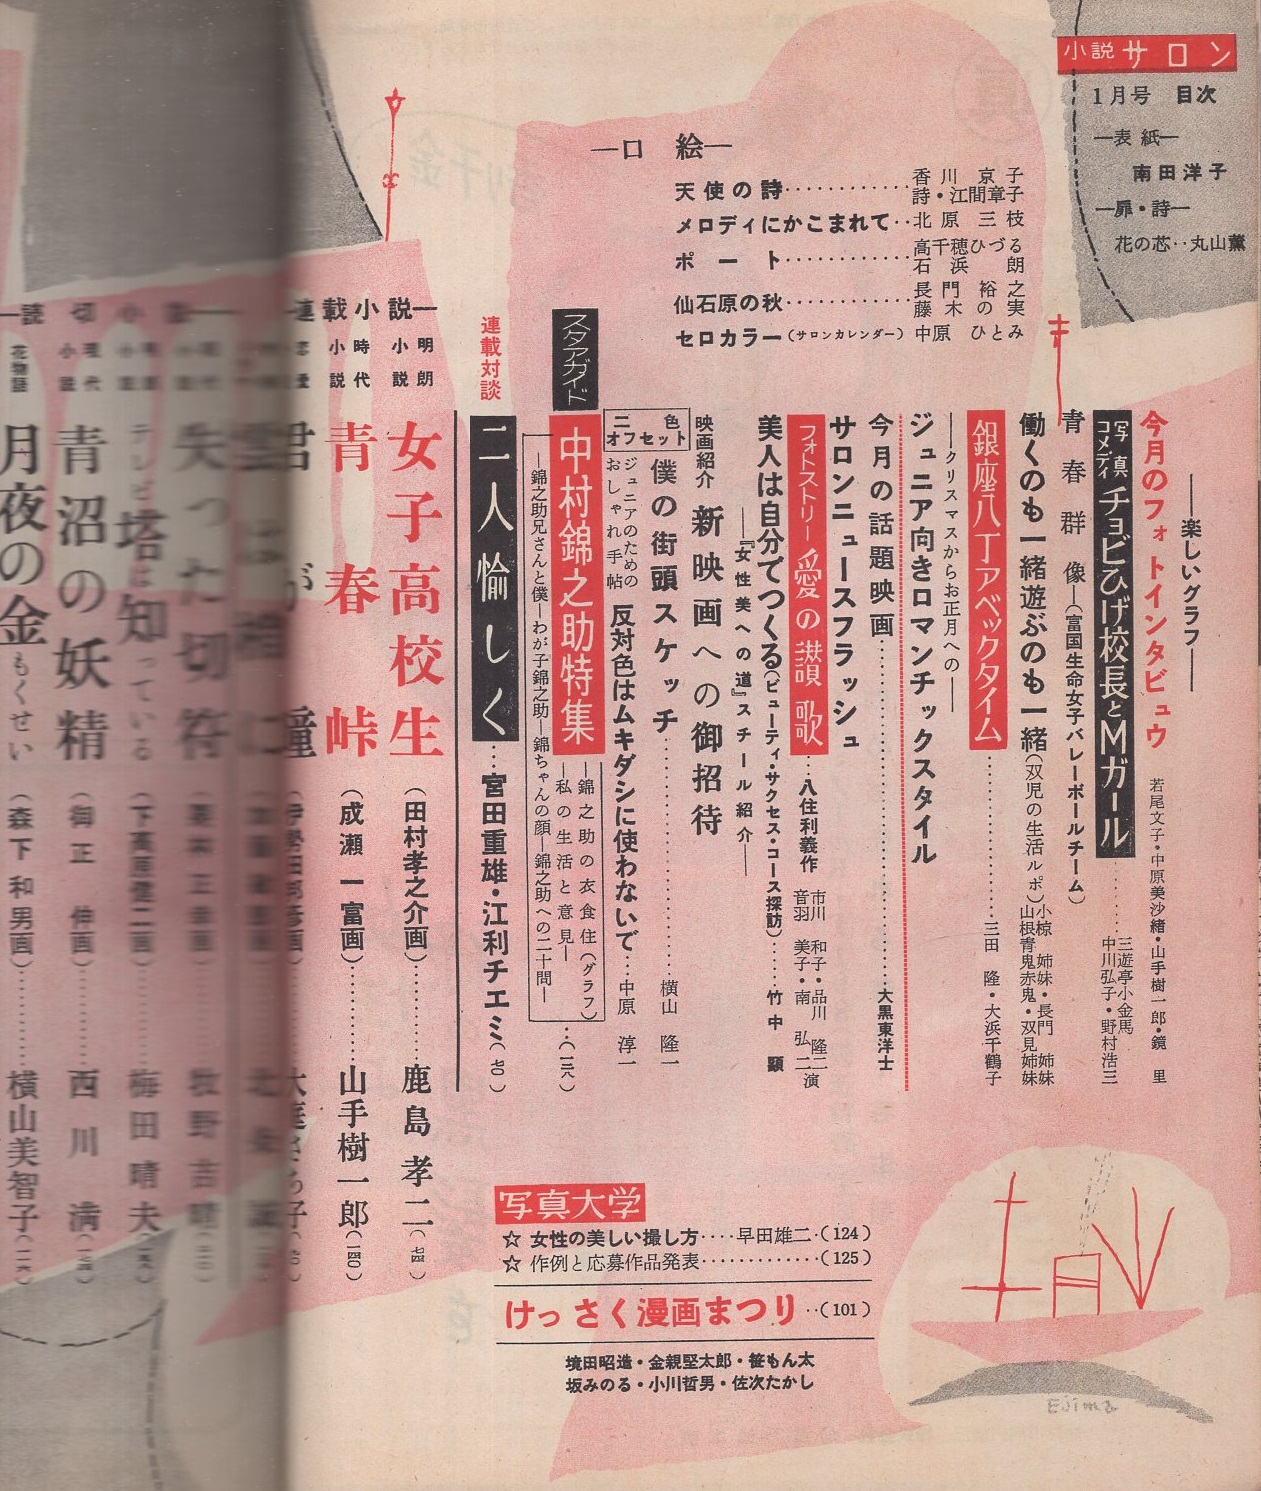 小説サロン
1月号 目次
―表紙―
南田洋子
―扉・詩―
花の芯‥丸山薫
―口絵―
天使の詩············香川京子
詩・江間章子
メロディにかこまれて··北原三枝
ポート············高千穂ひづる
石浜朗
仙石原の秋············長門裕之
藤木の実
セロカラー(サロンカレンダー)中原ひとみ
――楽しいグラフ――
今月のフォトインタビュウ 若尾文子・中原美沙緒・山手樹一郎・鏡里
写真コメディ チョビひげ校長とMガール······三遊亭小金馬
中川弘子・野村浩三
青春群像―(富国生命女子バレーボールチーム)
働くのも一緒遊ぶのも一緒(双児の生活ルポ)小椋姉妹・長門姉妹
山根青鬼赤鬼・双見姉妹
銀座八丁アベックタイム············三田隆・大浜千鶴子
――クリスマスからお正月への――
ジュニア向きロマンチックスタイル
今月の話題映画························大黒東洋士
サロンニュースフラッシュ
フォトストリー 愛の讃歌···八住利義作 市川和子・品川隆二
音羽美子・南弘二演
美人は自分でつくる(ビューティ・サクセス・コース探訪)·····竹中顕
――『女性美への道』スチール紹介――
映画紹介 新映画への御招待
二色オフセット
僕の街頭スケッチ··················横山隆一
ジュニアのためのおしゃれ手帖 反対色はムキダシに使わないで···中原淳一
スタアガイド
中村錦之助特集
―錦之助の衣食住(グラフ)
―私の生活と意見―
―錦之助兄さんと僕―わが子錦之助―錦ちゃんの顔―錦之助への二十問―
··(一三八)
連載対談
二人愉しく···宮田重雄・江利チエミ(七〇)
―連載小説―
明朗小説 女子高校生(田村孝之介画)·········鹿島孝二(七四)
時代小説 青春峠(成瀬一富画)·········山手樹一郎(一四〇)
君が瞳(伊勢田邦彦画)
―読切小説―
失った切符
牧野吉晴
テレビ塔は知っている(下高原健二画)·········梅田晴夫
現代小説 青沼の妖精(御正伸画)·········西川満
花物語 月夜の金もくせい(森下和男画)·········横山美智子
写真大学
☆ 女性の美しい撮し方····早田雄二·(124)
☆ 作例と応募作品発表············(125)
けっさく漫画まつり··(101)
境田昭造・金親堅太郎・笹もん太
坂みのる・小川哲男・佐次たかし
Ejima